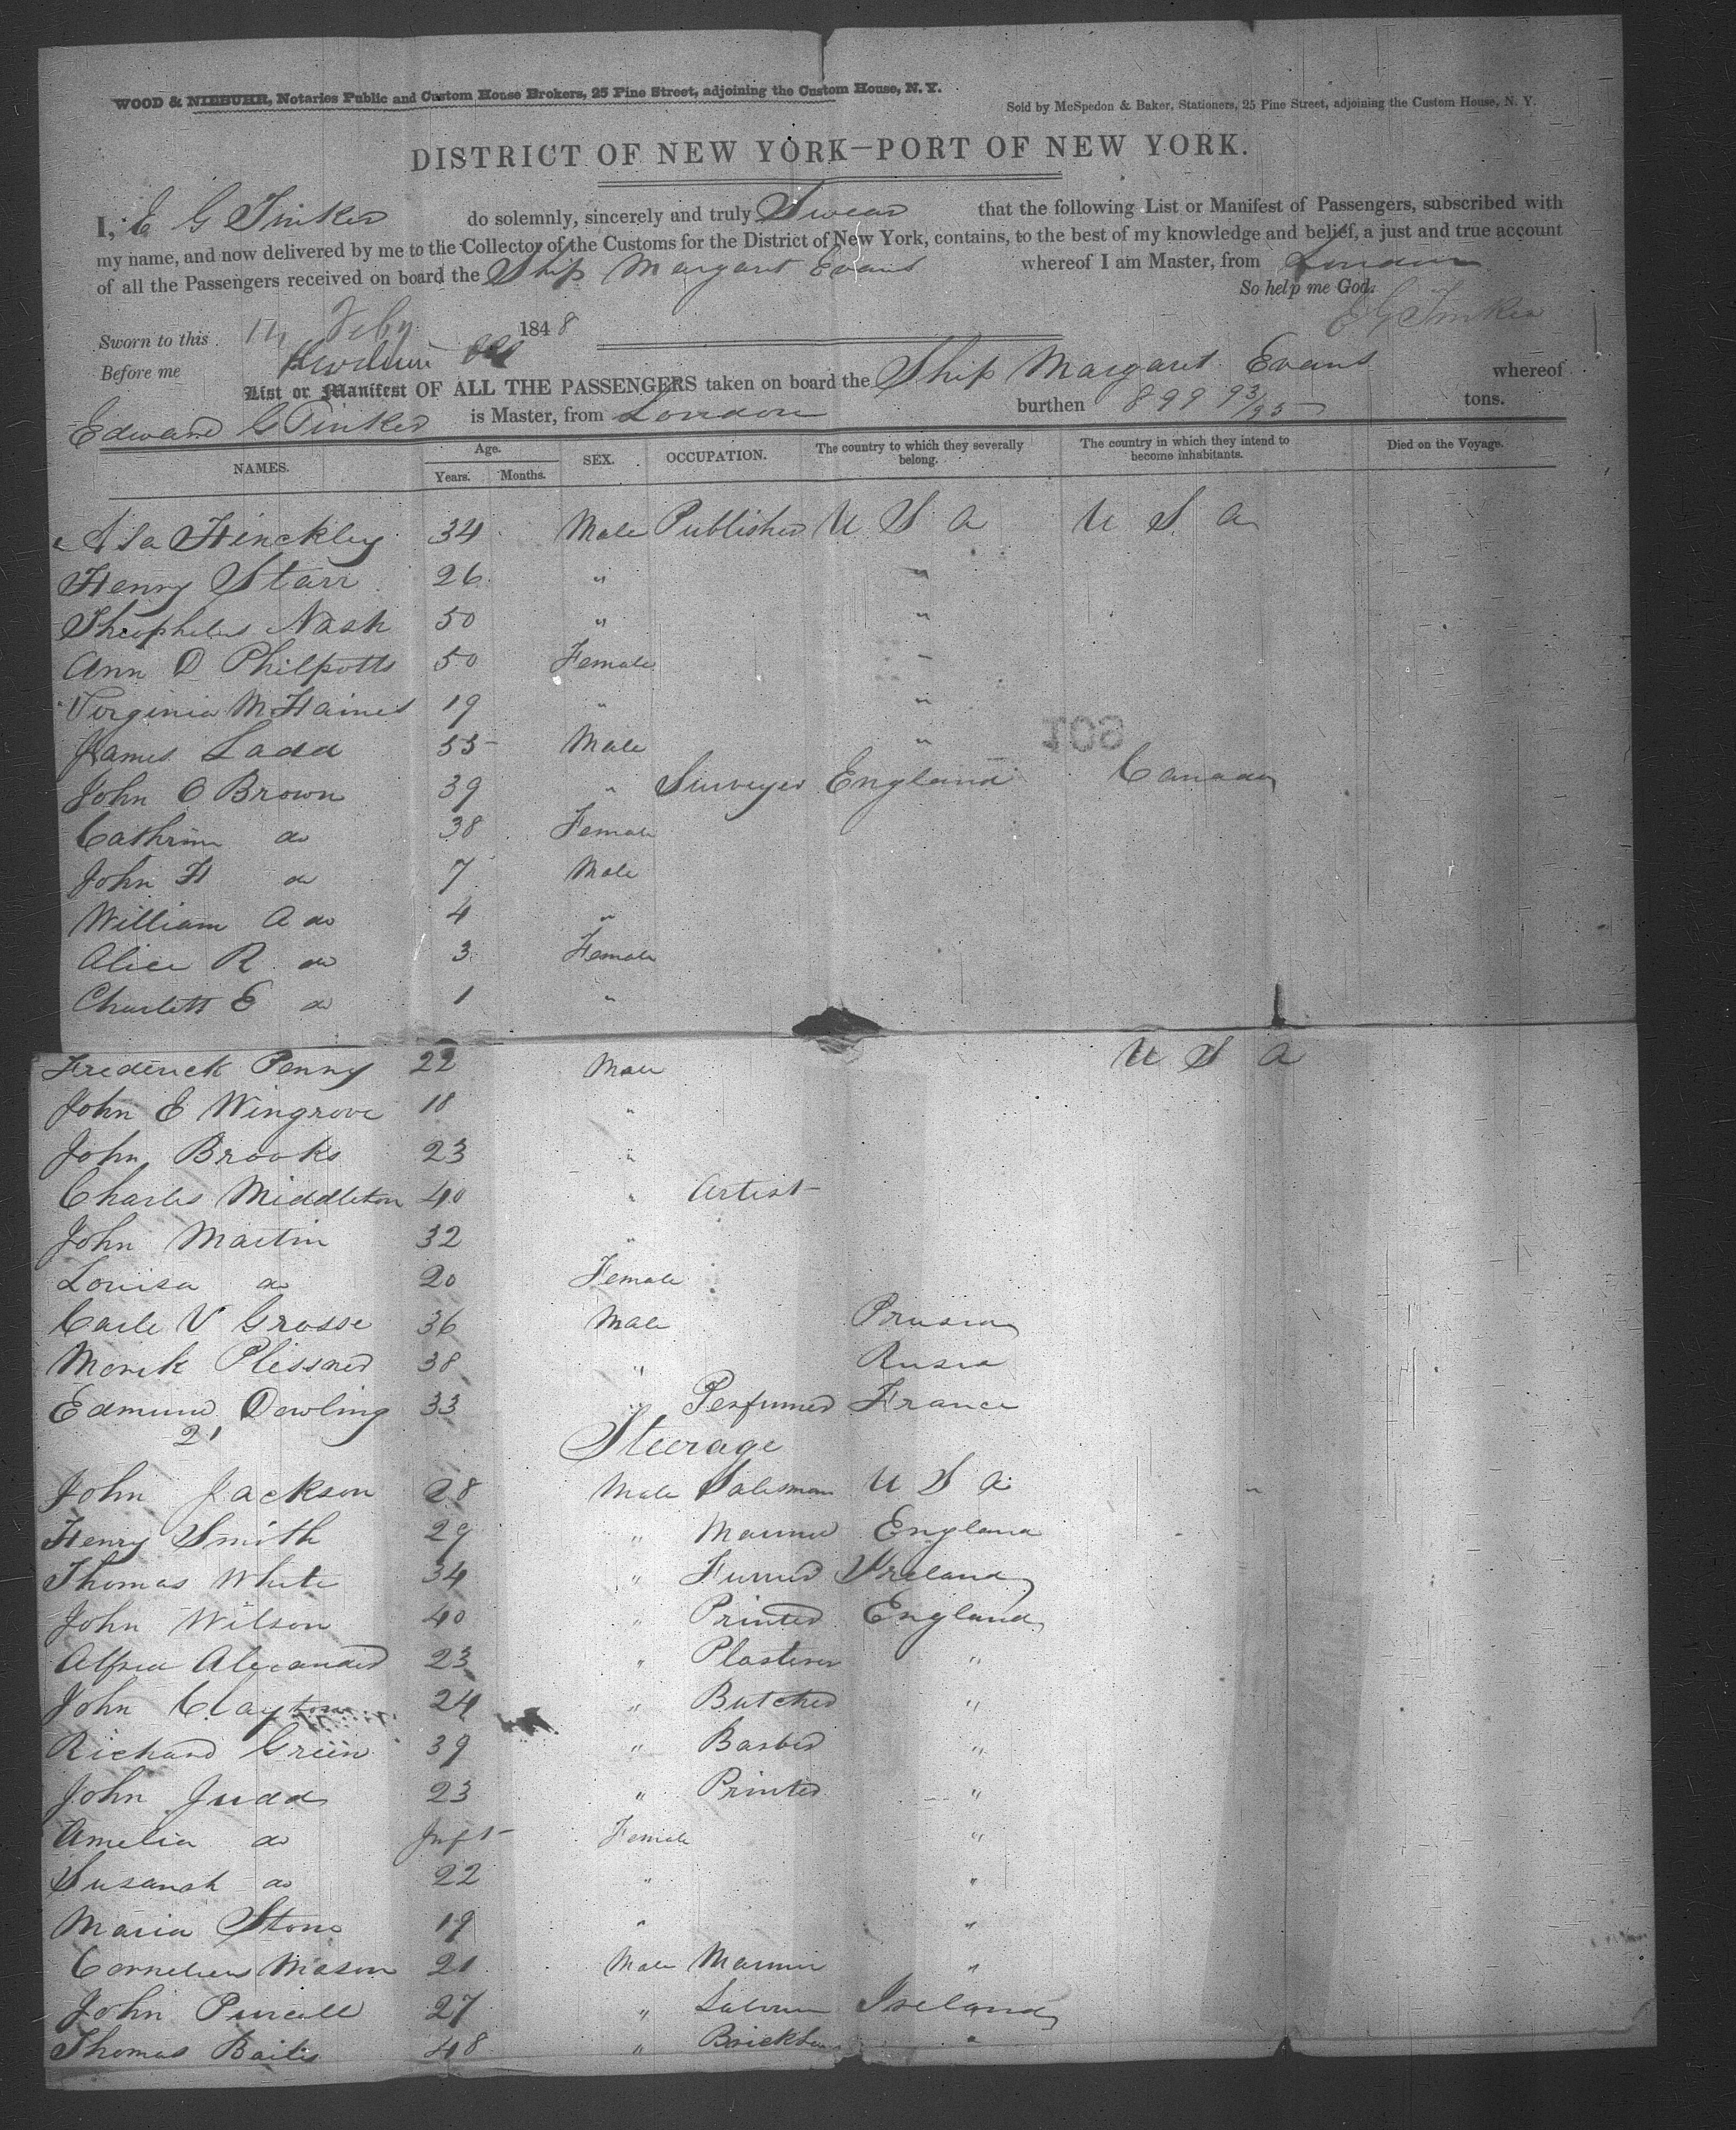 WOOD & NIEBUHR, Notaries Public and Custom House Brokers, 25 Pine Street, adjoining the Custom House, N. Y.
Sold by McSpedon & Baker, Stationers, 25 Pine Street, adjoining the Custom House, N. Y.
DISTRICT OF NEW YORK—PORT OF NEW YORK.
I, E G Tinker do solemnly, sincerely and truly Swear that the following List or Manifest of Passengers, subscribed with
my name, and now delivered by me to the Collector of the Customs for the District of New York, contains, to the best of my knowledge and belief, a just and true account
of all the Passengers received on board the Ship Margaret Evans whereof I am Master, from London
So help me God.
Sworn to this 14 Feby 1848 E G Tinker
Before me
List or Manifest OF ALL THE PASSENGERS taken on board the Ship Margaret Evans whereof
Edward G Tinker is Master, from London burthen 899 93/95 tons.
NAMES. Age. Years. Months. SEX. OCCUPATION. The country to which they severally belong. The country in which they intend to become inhabitants. Died on the Voyage.
Asa Hinckley 34 Male Publisher U S A U S A
Henry Starr 26 " "
Theophelus Nash 50 " "
Ann D Philpotts 50 Female "
Virginia M Haines 19 " "
James Ladd 55 Male "
109
John O Brown 39 " Surveyor England Canada
Cathrine do 38 Female
John H do 7 Male
William A do 4 "
Alice R do 3 Female
Charlott E do 1 "
Frederick Penny 22 Male U S A
John E Wingrove 18 "
John Brooks 23 "
Charles Middleton 40 " Artist
John Martin 32 "
Louisa do 20 Female
Carle V Grosse 36 Male Prusia
Morik Plissner 38 " Rusia
Edmund Dowling 33 " Perfumer France
21 Steerage
John Jackson 28 Male Salesman U S A "
Henry Smith 29 " Mariner England
Thomas White 34 " Furrier Ireland
John Wilson 40 " Printer England
Alfred Alexander 23 " Plasterer "
John Clayton 24 " Butcher "
Richard Green 39 " Barber "
John Judd 23 " Printer "
Amelia do Inft Female "
Susanah do 22 " "
Maria Stone 19 " "
Cornelius Mason 21 Male Mariner "
John Purcell 27 " Ireland
Thomas Bailis 48 " "